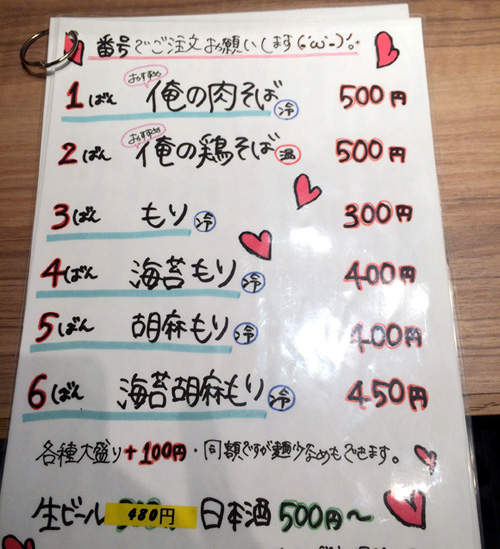 番号でご注文お願いします(´ω`)!。
おすすめ
1ばん 俺の肉そば 冷 500円
おすすめ
2ばん 俺の鶏そば 温 500円
3ばん もり 冷 300円
4ばん 海苔もり 冷 400円
5ばん 胡麻もり 冷 400円
6ばん 海苔胡麻もり 冷 450円
各種大盛り+100円・同額ですが麺少なめもできます。
生ビール 480円 日本酒 500円〜